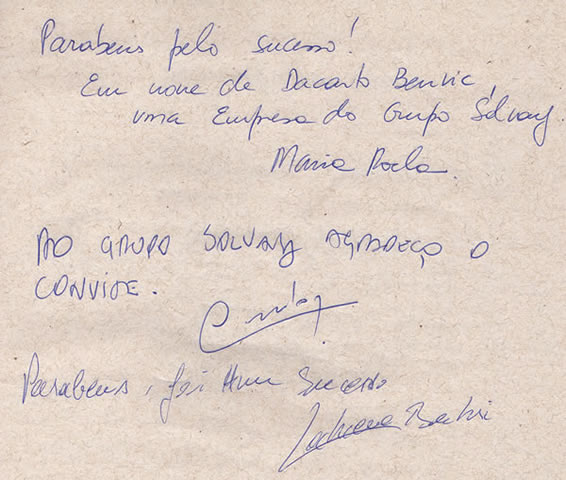 Parabens pelo sucesso!
Em nome de Dacarto Benvic,
uma Empresa do Grupo Solvay.
Maria
AO GRUPO SOLVAY AGRADEÇO O
CONVITE.
Parabens, foi um sucesso